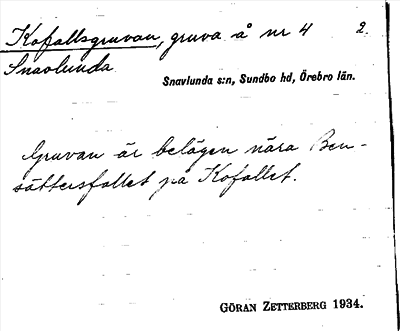 Kofallsgruvan, gruva å nr 4 2.
Snavlunda
Snavlunda s:n, Sundbo hd, Örebro län.
Gruvan är belägen nära Ben-
sättersfallet på Kofallet.
GÖRAN ZETTERBERG 1934.